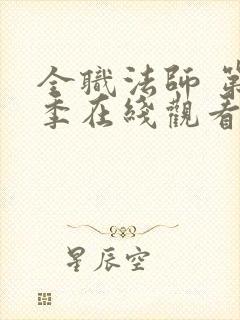 全職法師 第
季在綫觀看
星辰空